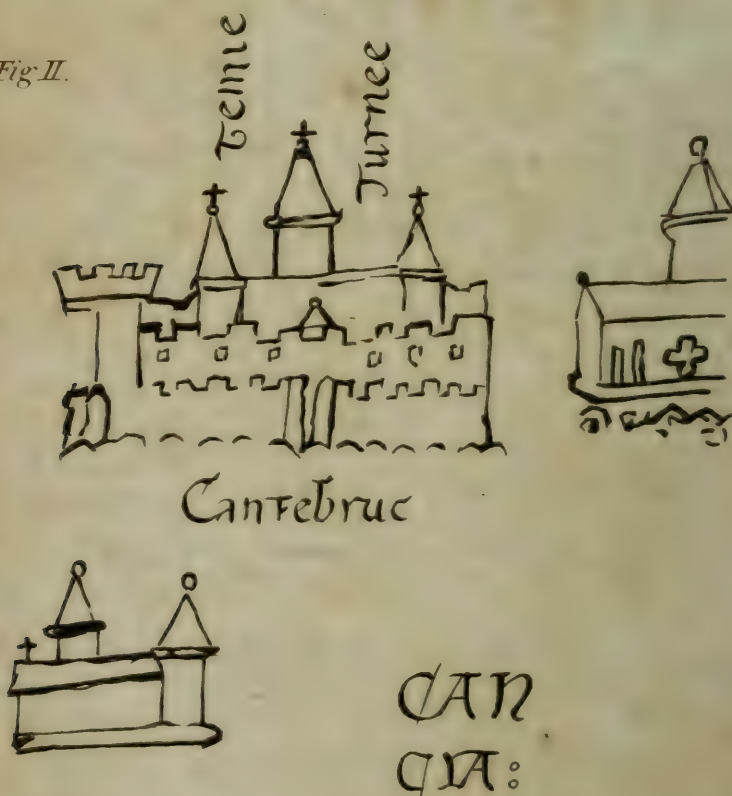 Fig. II.
Jurnee
Cantebruc
CAN
CIA: